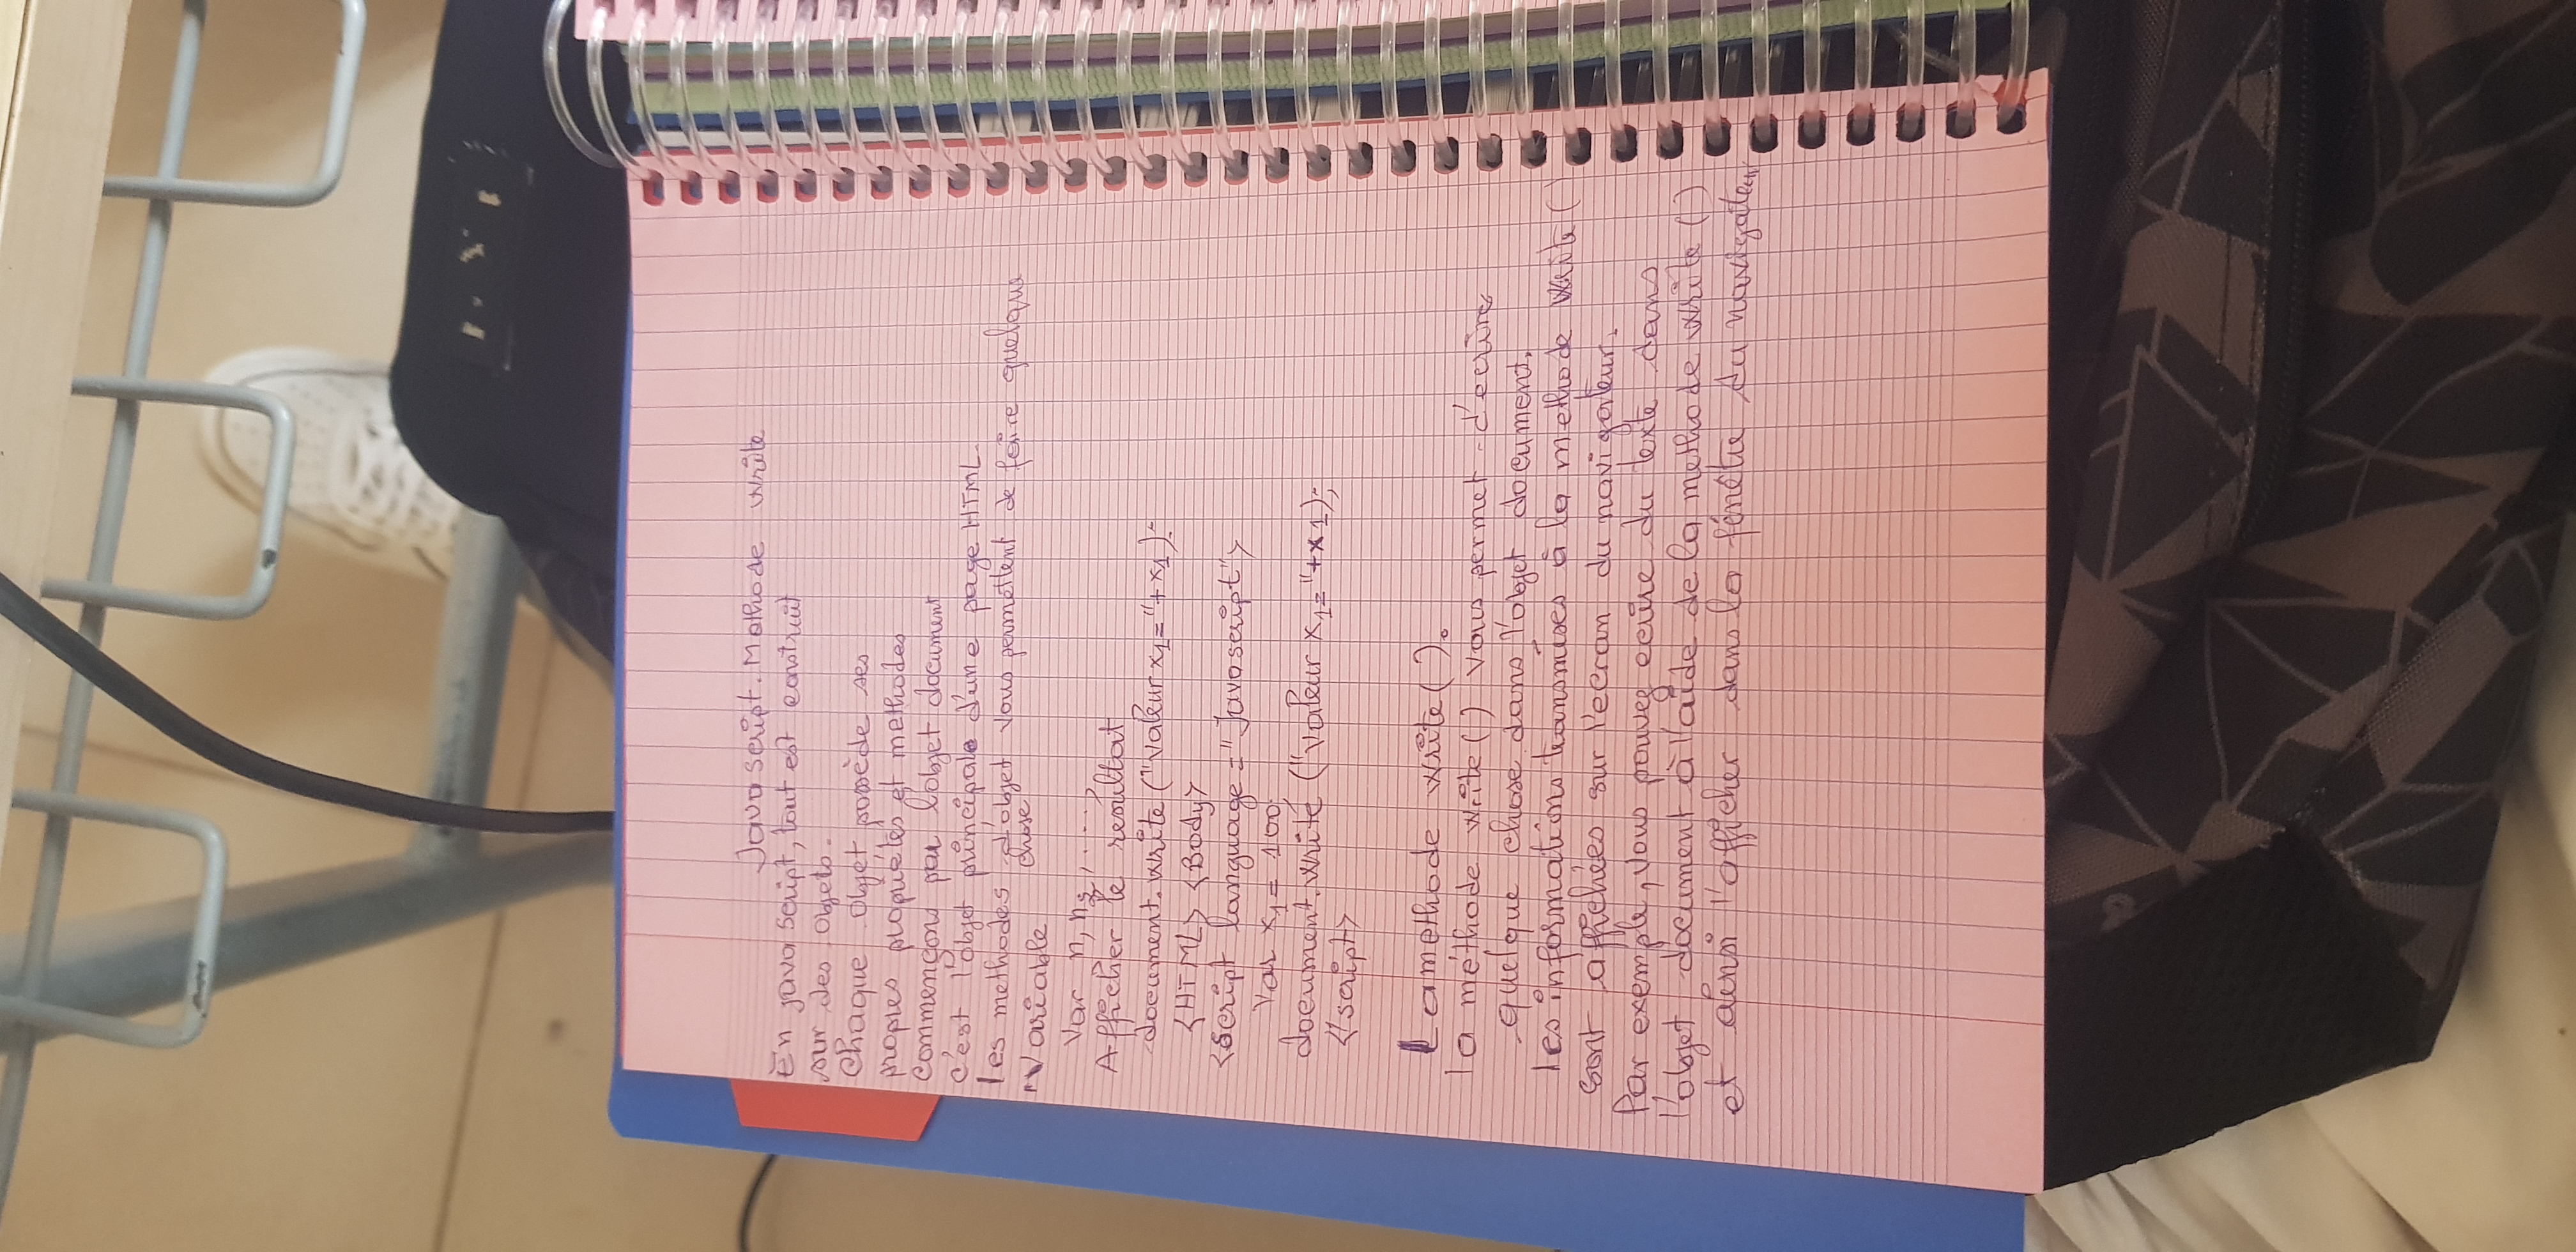 Javascript. Methode write
En java script, tout est construit
sur des objets.
chaque objet possède ses
propres propriétés et methodes
commençons par l'objet document
c'est l'objet principale d'une page HTML.
les methodes d'objet vous permettent de faire quelque
chose
Variable
Var n, n2, ....,
Afficher le resultat
document.write ("Valeur x1="+x1);
<HTML> <Body>
<script language="Javascript">
Var x1= 100;
document.write ("Valeur x1="+x1);
</script>
La methode write().
la méthode write() vous permet d'ecrire
quelque chose dans l'objet document.
les informations transmises à la methode write()
sont affichées sur l'ecran du navigateur.
Par exemple, vous pouvez ecrire du texte dans
l'objet document à l'aide de la methode write()
et ainsi l'afficher dans la fenêtre du navigateur